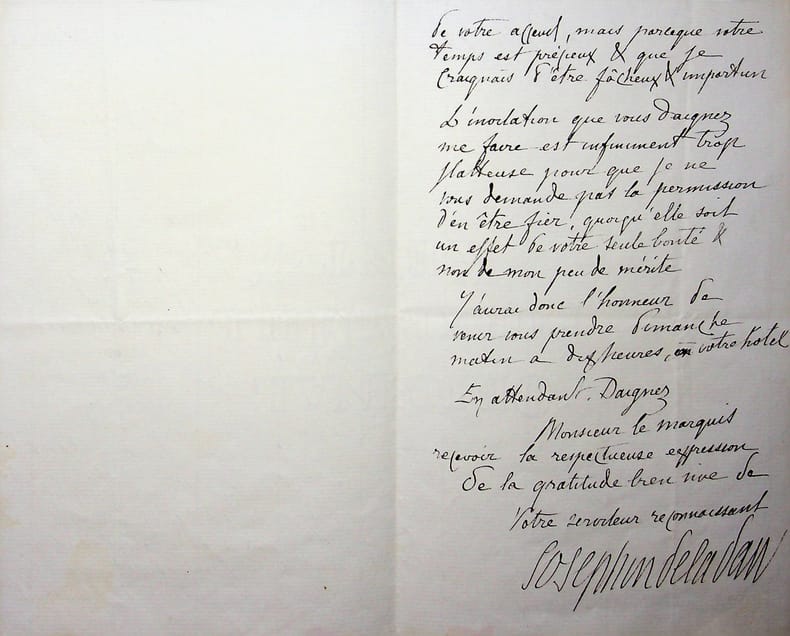 de votre acceuil, mais parceque votre
temps est précieux & que je
craignais d'être fâcheux & importun
L'invitation que vous daignez
me faire est infiniment trop
flatteuse pour que je ne
vous demande pas la permission
d'en être fier, quoiqu'elle soit
un effet de votre seule bonté &
non de mon peu de mérite
J'aurai donc l'honneur de
venir vous prendre dimanche
matin a dix heures, en votre hotel
En attendant. Daignez
Monsieur le marquis
recevoir la respectueuse expression
de la gratitude bien vive de
Votre serviteur reconnaissant
Josephin Peladan